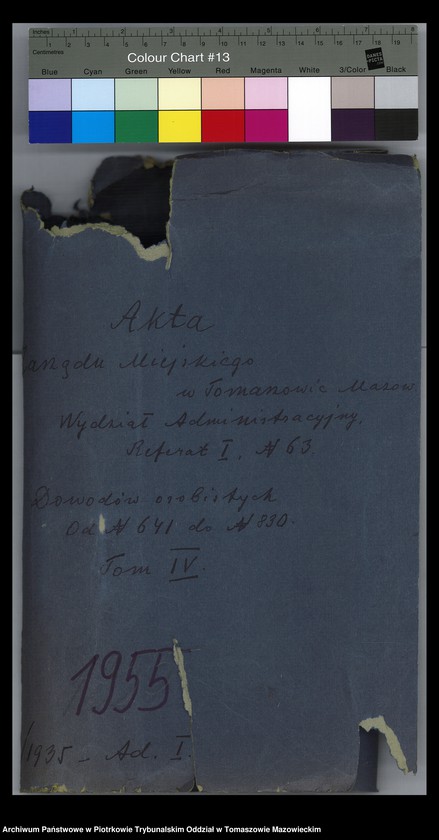 Inches 1 2 3 4 5 6 7 8
Centimetres 1 2 3 4 5 6 7 8 9 10 11 12 13 14 15 16 17 18 19
Colour Chart #13
DANES PICTA
Blue Cyan Green Yellow Red Magenta White 3/Color Black
Akta
arządu Miejskiego
w Tomaszowie Mazow.
Wydział Administracyjny.
Referat I. № 63.
Dowodów osobistych
Od № 641 do № 830.
Tom IV.
1955
/1935 - Ad. I
Archiwum Państwowe w Piotrkowie Trybunalskim Oddział w Tomaszowie Mazowieckim